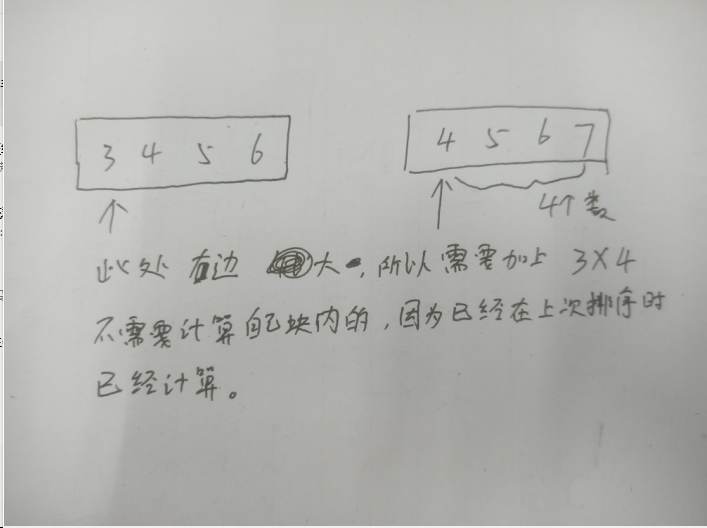 3 4 5 6
4 5 6 7
4个数
此处 右边 大,所以需要加上 3×4
不需要计算自己块内的,因为已经在上次排序时
已经计算。